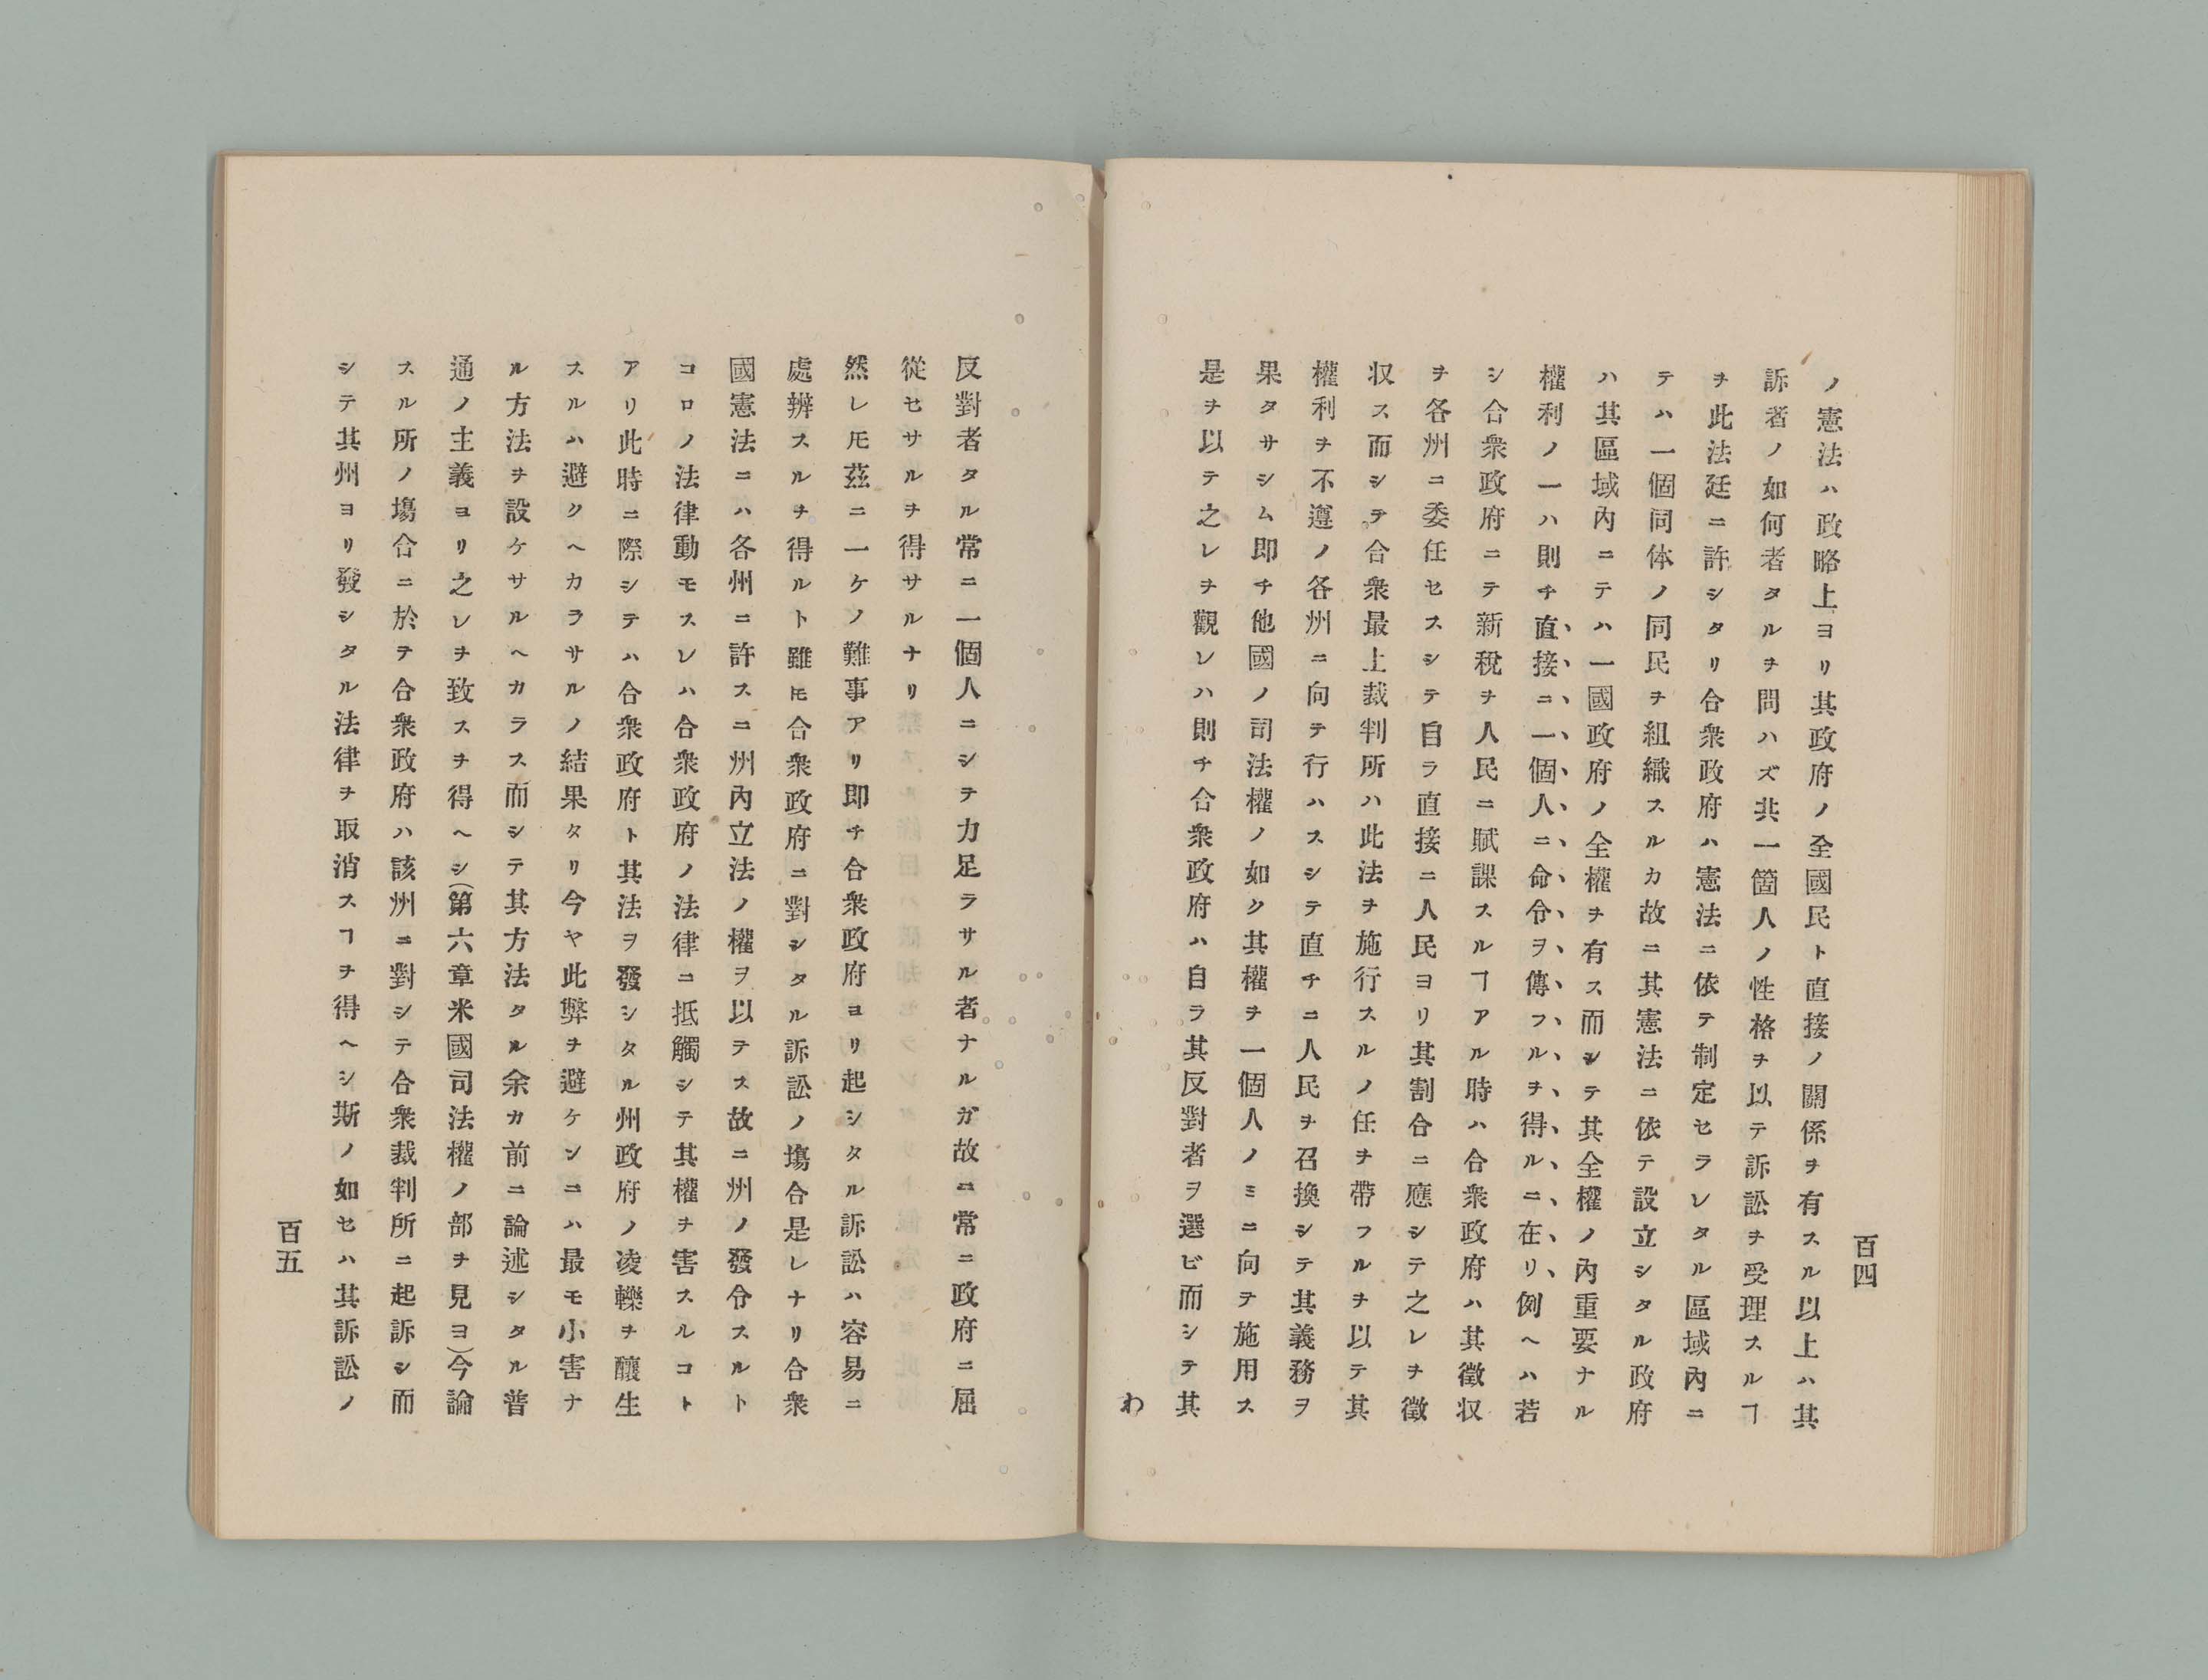 百四
ノ憲法ハ政略上ヨリ其政府ノ全國民ト直接ノ關係ヲ有スル以上ハ其
訴者ノ如何者タルヲ問ハズ共一箇人ノ性格ヲ以テ訴訟ヲ受理スルヿ
ヲ此法廷ニ許シタリ合衆政府ハ憲法ニ依テ制定セラレタル區域內ニ
テハ一個同体ノ同民ヲ組織スルカ故ニ其憲法ニ依テ設立シタル政府
ハ其區域內ニテハ一國政府ノ全權ヲ有ス而シテ其全權ノ內重要ナル
權利ノ一ハ則チ直接ニ一個人ニ命令ヲ傳フルヲ得ルニ在リ例ヘハ若
シ合衆政府ニテ新稅ヲ人民ニ賦課スルヿアル時ハ合衆政府ハ其徵収
ヲ各州ニ委任セスシテ自ラ直接ニ人民ヨリ其割合ニ應シテ之レヲ徵
収ス而シテ合衆最上裁判所ハ此法ヲ施行スルノ任ヲ帶フルヲ以テ其
權利ヲ不遵ノ各州ニ向テ行ハスシテ直チニ人民ヲ召換シテ其義務ヲ
果タサシム即チ他國ノ司法權ノ如ク其權ヲ一個人ノミニ向テ施用ス
是ヲ以テ之レヲ觀レハ則チ合衆政府ハ自ラ其反對者ヲ選ビ而シテ其
わ
反對者タル常ニ一個人ニシテ力足ラサル者ナルガ故ニ常ニ政府ニ屈
從セサルヲ得サルナリ
然レ𪜈茲ニ一ケノ難事アリ即チ合衆政府ヨリ起シタル訴訟ハ容易ニ
處辨スルヲ得ルト雖𪜈合衆政府ニ對シタル訴訟ノ塲合是レナリ合衆
國憲法ニハ各州ニ許スニ州內立法ノ權ヲ以テス故ニ州ノ發令スルト
コロノ法律動モスレハ合衆政府ノ法律ニ抵觸シテ其權ヲ害スルコト
アリ此時ニ際シテハ合衆政府ト其法ヲ發シタル州政府ノ凌轢ヲ釀生
スルハ避クヘカラサルノ結果タリ今ヤ此弊ヲ避ケンニハ最モ小害ナ
ル方法ヲ設ケサルヘカラス而シテ其方法タル余カ前ニ論述シタル普
通ノ主義ヨリ之レヲ致スヲ得ヘシ(第六章米國司法權ノ部ヲ見ヨ)今論
スル所ノ塲合ニ於テ合衆政府ハ該州ニ對シテ合衆裁判所ニ起訴シ而
シテ其州ヨリ發シタル法律ヲ取消スヿヲ得ヘシ斯ノ如セハ其訴訟ノ
百五